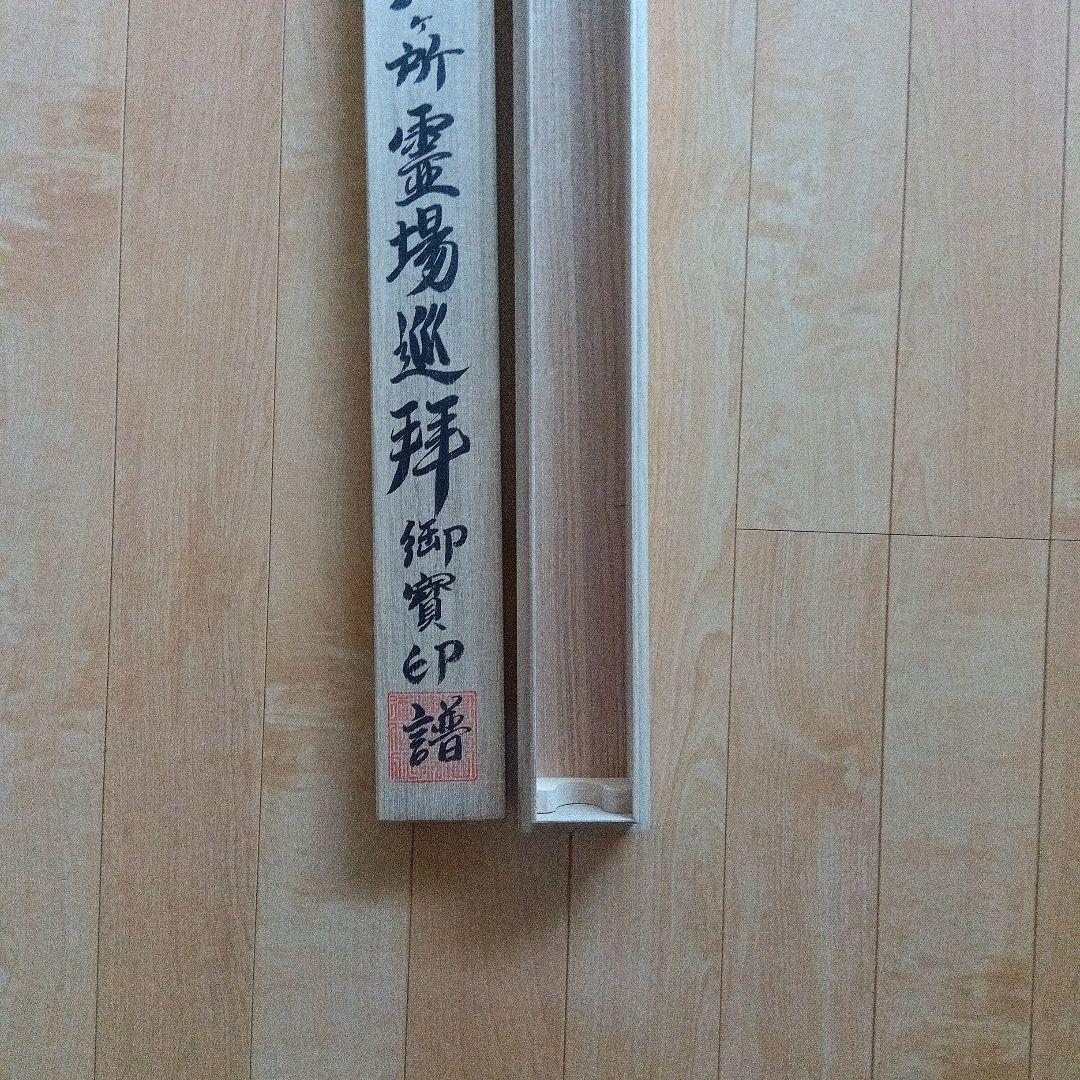 ヶ所霊場巡拝御寳印譜